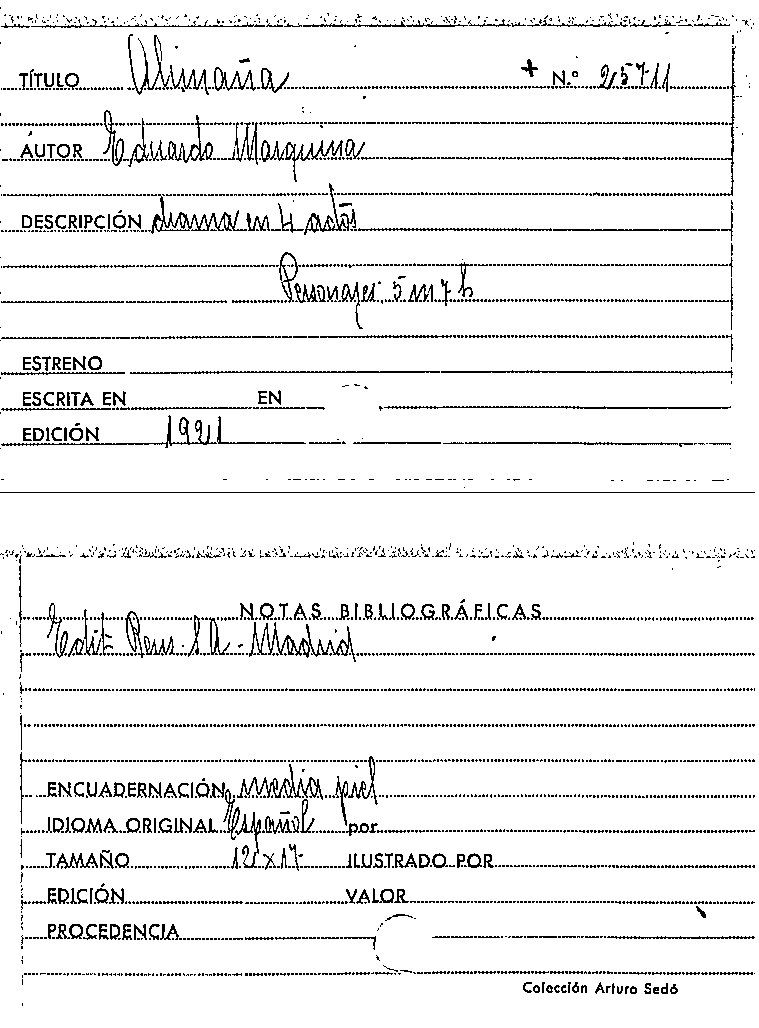 TÍTULO Alimaña + N.º 25711
AUTOR Eduardo Marquina
DESCRIPCIÓN drama en 4 actos
Personajes: 5 m 7 h
ESTRENO
ESCRITA EN EN
EDICIÓN 1921
NOTAS BIBLIOGRÁFICAS
Edit Reus. S A. - Madrid
ENCUADERNACIÓN media piel
IDIOMA ORIGINAL Español por
TAMAÑO 12 x 17 ILUSTRADO POR
EDICIÓN VALOR
PROCEDENCIA
Colección Arturo Sedó